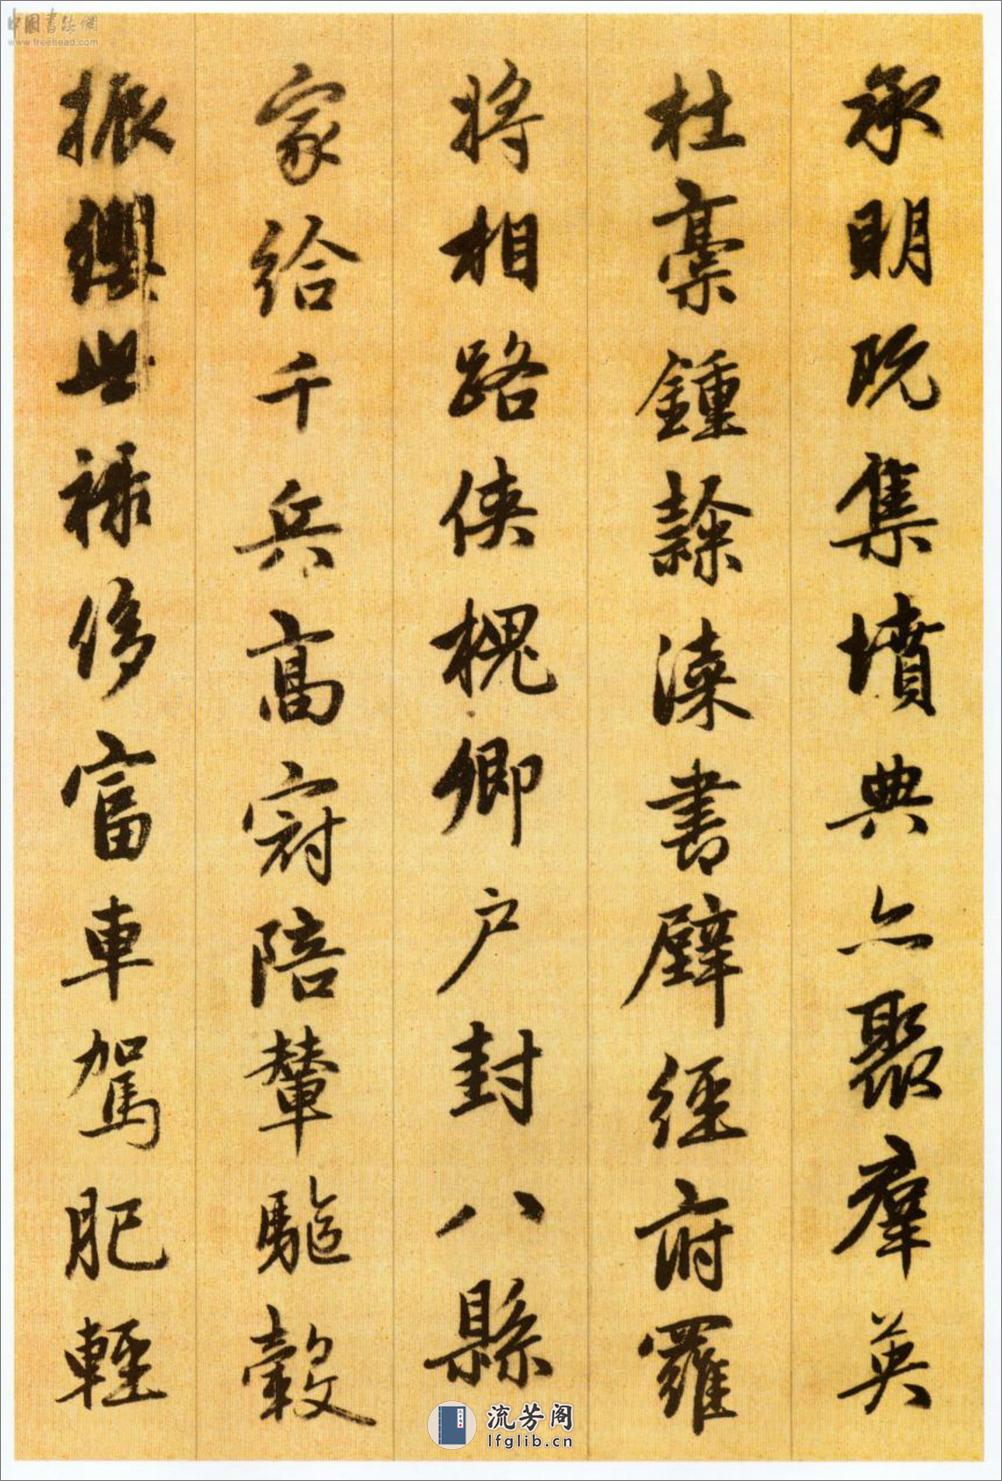 承明既集墳典亦聚羣英
杜稾鍾隸漆書壁經府羅
將相路俠槐卿户封八縣
家給千兵高冠陪輦驅轂
振纓世祿侈富車駕肥輕
中国书法网
www.freehead.com
流芳阁
lfglib.cn